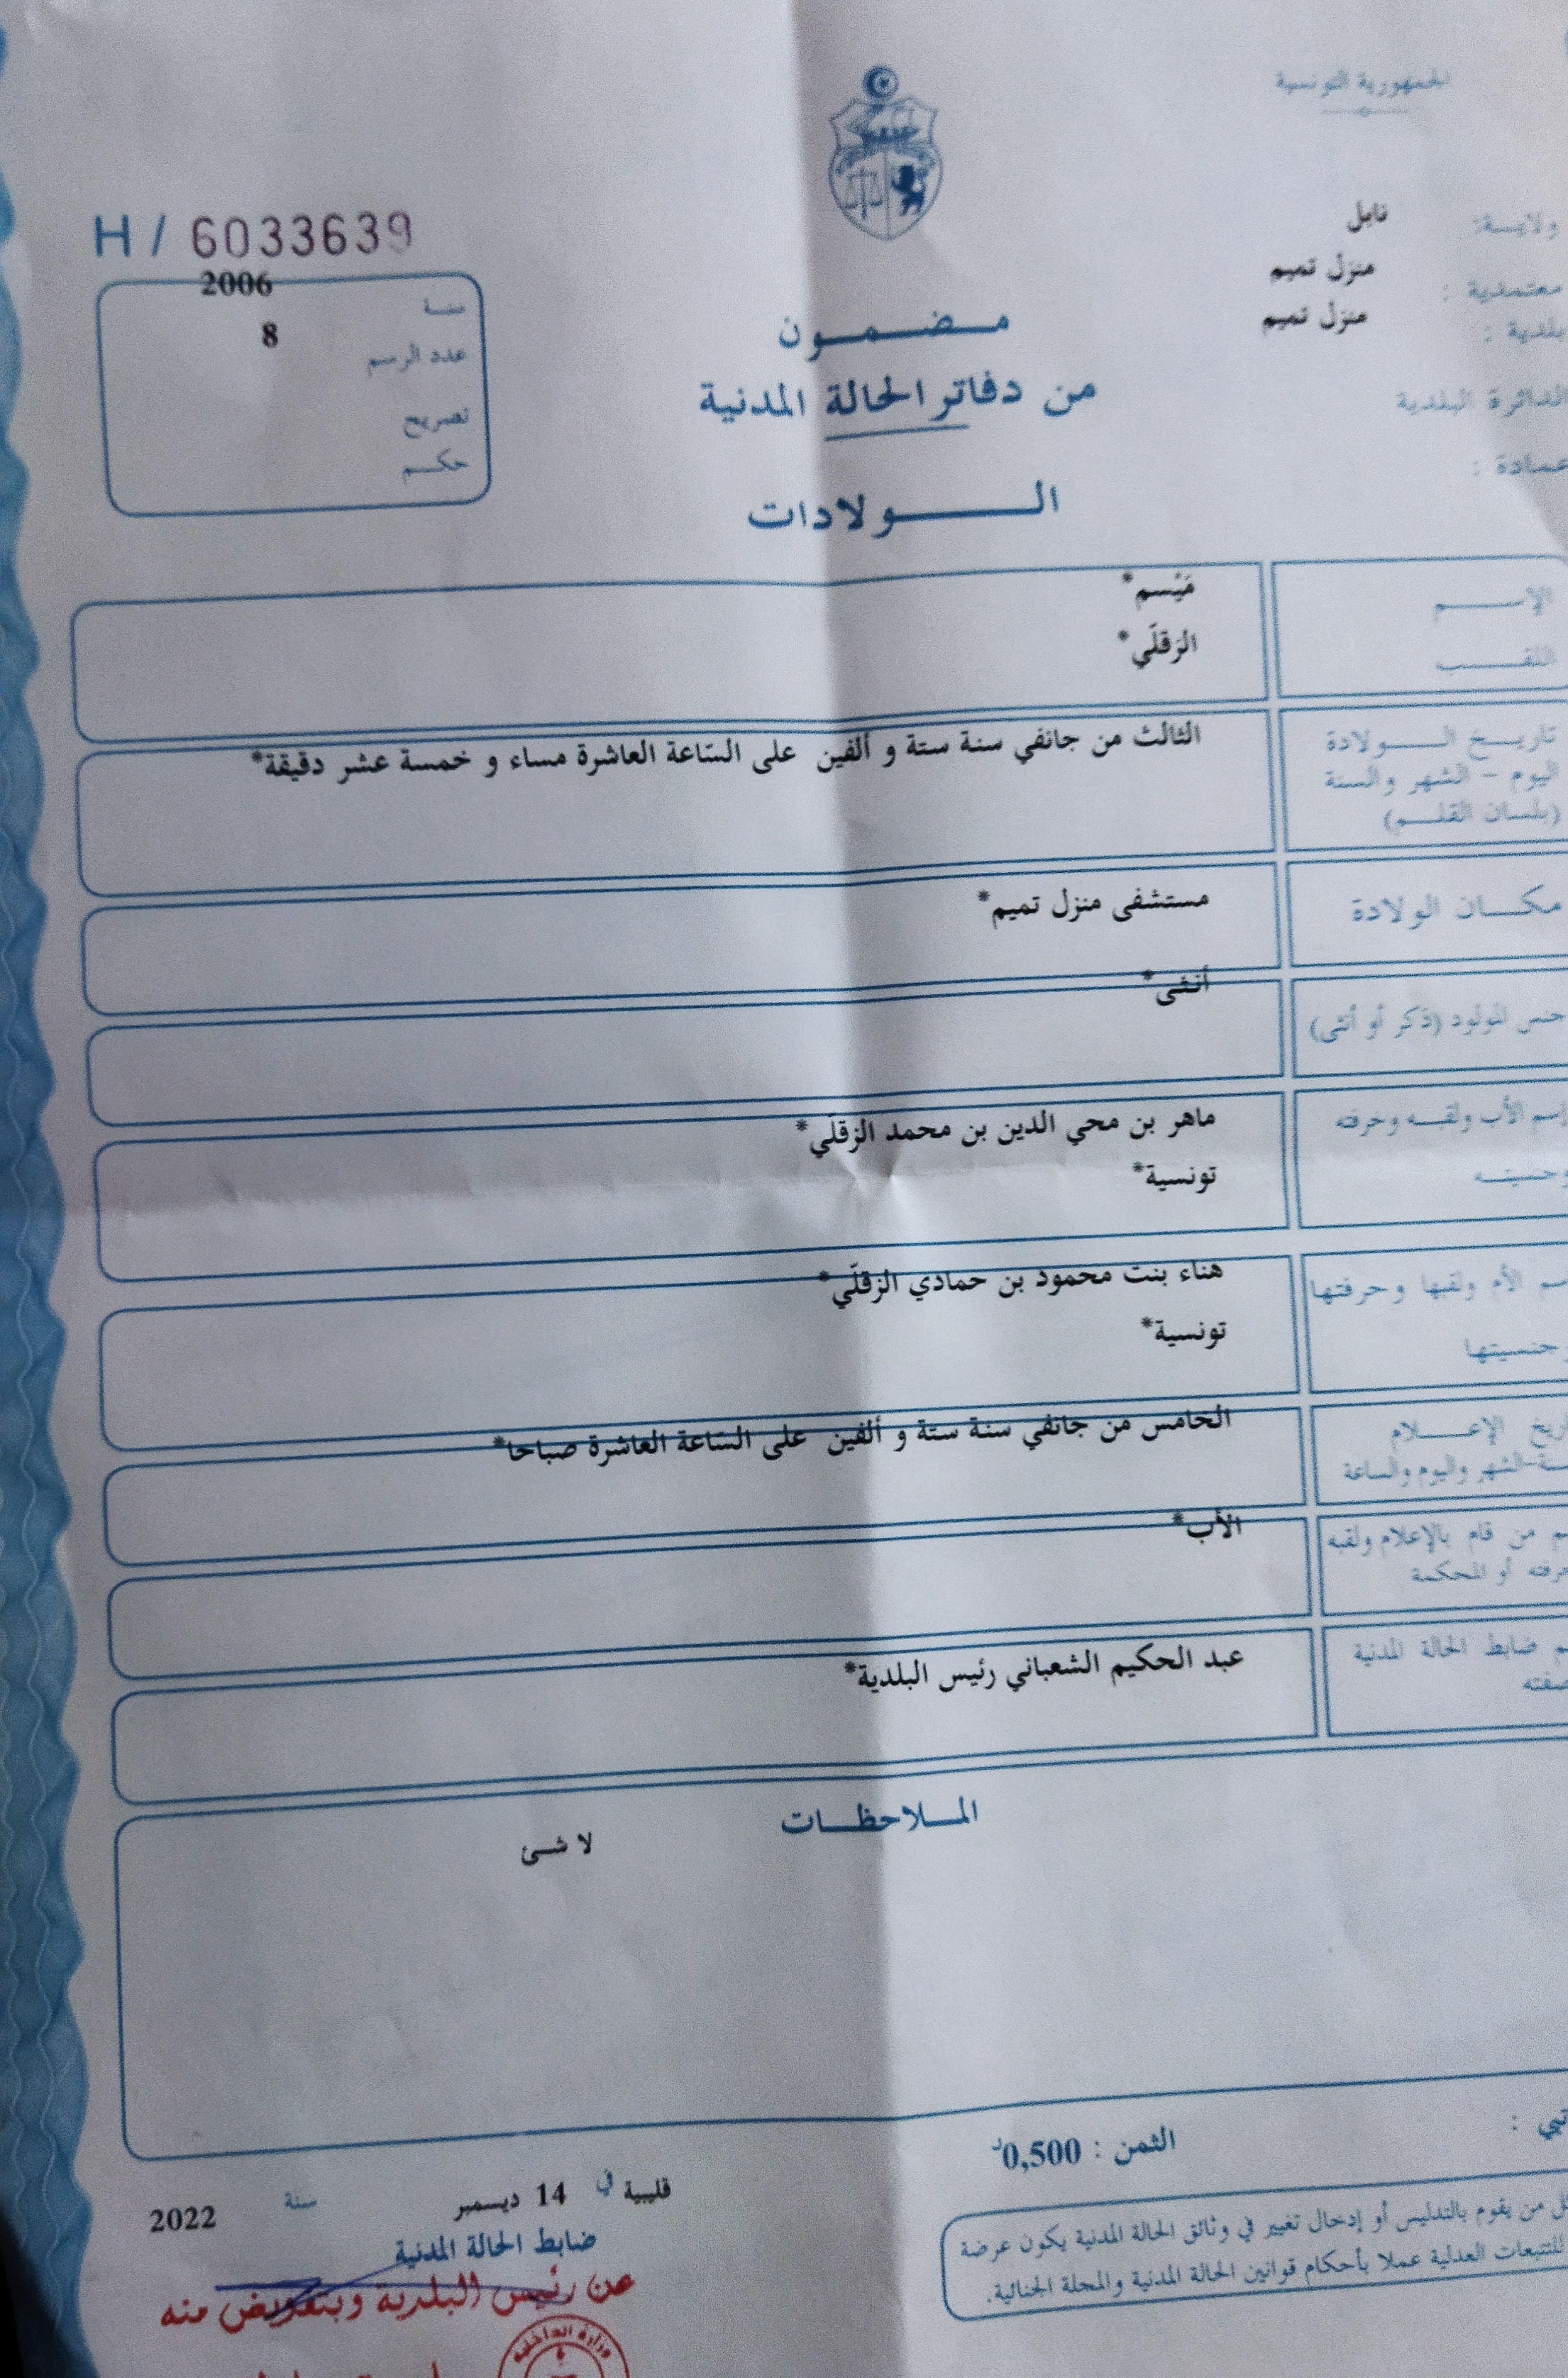 الجمهورية التونسية
ولايــة: نابل
معتمدية : منزل تميم
بلدية : منزل تميم
الدائرة البلدية
عمادة :
H / 6033639
سنة 2006
عدد الرسم 8
تصريح
حكم
مضمون
من دفاتر الحالة المدنية
الولادات
الإسم مَيْسم*
اللقب الزقلّي*
تاريخ الولادة
اليوم - الشهر والسنة
(بلسان القلم)
الثالث من جانفي سنة ستة و ألفين على السّاعة العاشرة مساء و خمسة عشر دقيقة*
مكان الولادة مستشفى منزل تميم*
جنس المولود (ذكر أو أنثى) أنثى*
إسم الأب ولقبه وحرفته ماهر بن محي الدين بن محمد الزقلّي*
وجنسيته تونسية*
الأم ولقبها وحرفتها هناء بنت محمود بن حمادي الزقلّي*
جنسيتها تونسية*
الإعلام
الشهر واليوم والساعة
الخامس من جانفي سنة ستة و ألفين على السّاعة العاشرة صباحا*
من قام بالإعلام ولقبه
أو المحكمة
الأب*
ضابط الحالة المدنية عبد الحكيم الشعباني رئيس البلدية*
الملاحظات
لا شئ
الثمن : 0,500د
من يقوم بالتدليس أو إدخال تغيير في وثائق الحالة المدنية يكون عرضة
للتتبعات العدلية عملا بأحكام قوانين الحالة المدنية والمجلة الجنائية.
قليبية في 14 ديسمبر سنة 2022
ضابط الحالة المدنية
عن رئيس البلدية وبتفويض منه
وزارة الداخلية